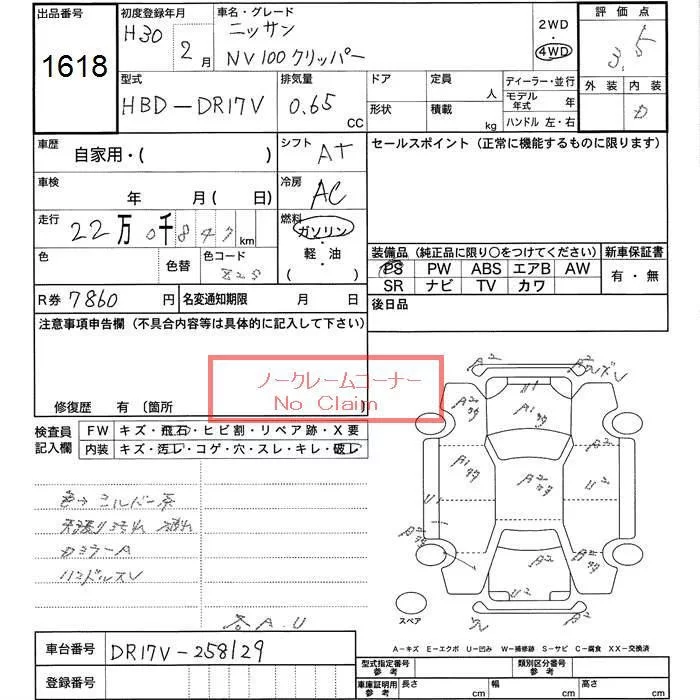 出品番号
1618
初度登録年月
H30 2月
車名・グレード
ニッサン
NV100クリッパー
2WD
・
4WD
評価点
3.5
外装 内装
型式
HBD-DR17V
排気量
0.65 CC
ドア
形状
定員 人
積載 kg
ディーラー・並行
モデル年式 年
ハンドル 左・右
車歴
自家用・( )
シフト AT
セールスポイント(正常に機能するものに限ります)
車検 年 月( 日)
冷房 AC
走行 22万0千847km
燃料
ガソリン
・
軽油
( )
色 色替 色コード
装備品(純正品に限り○をつけてください)
新車保証書
PS PW ABS エアB AW
SR ナビ TV カワ
有・無
R券 7860円
名変通知期限 月 日
後日品
注意事項申告欄(不具合内容等は具体的に記入して下さい)
ノークレームコーナー
No Claim
修復歴 有〔箇所
検査員記入欄
FW キズ・飛石・ヒビ割・リペア跡・X要
内装 キズ・汚レ・コゲ・穴・スレ・キレ・破レ
色→シルバー系
天張り汚れ 破れ
カミラーA
ハンドルスレ
各A.U
スペア
A-キズ E-エクボ U-凹み W-補修跡 S-サビ C-腐食 XX-交換済
車台番号 DR17V-258129
登録番号
型式指定番号 参考
類別区分番号 参考
車庫証明用 参考 長さ cm 幅 cm 高さ cm